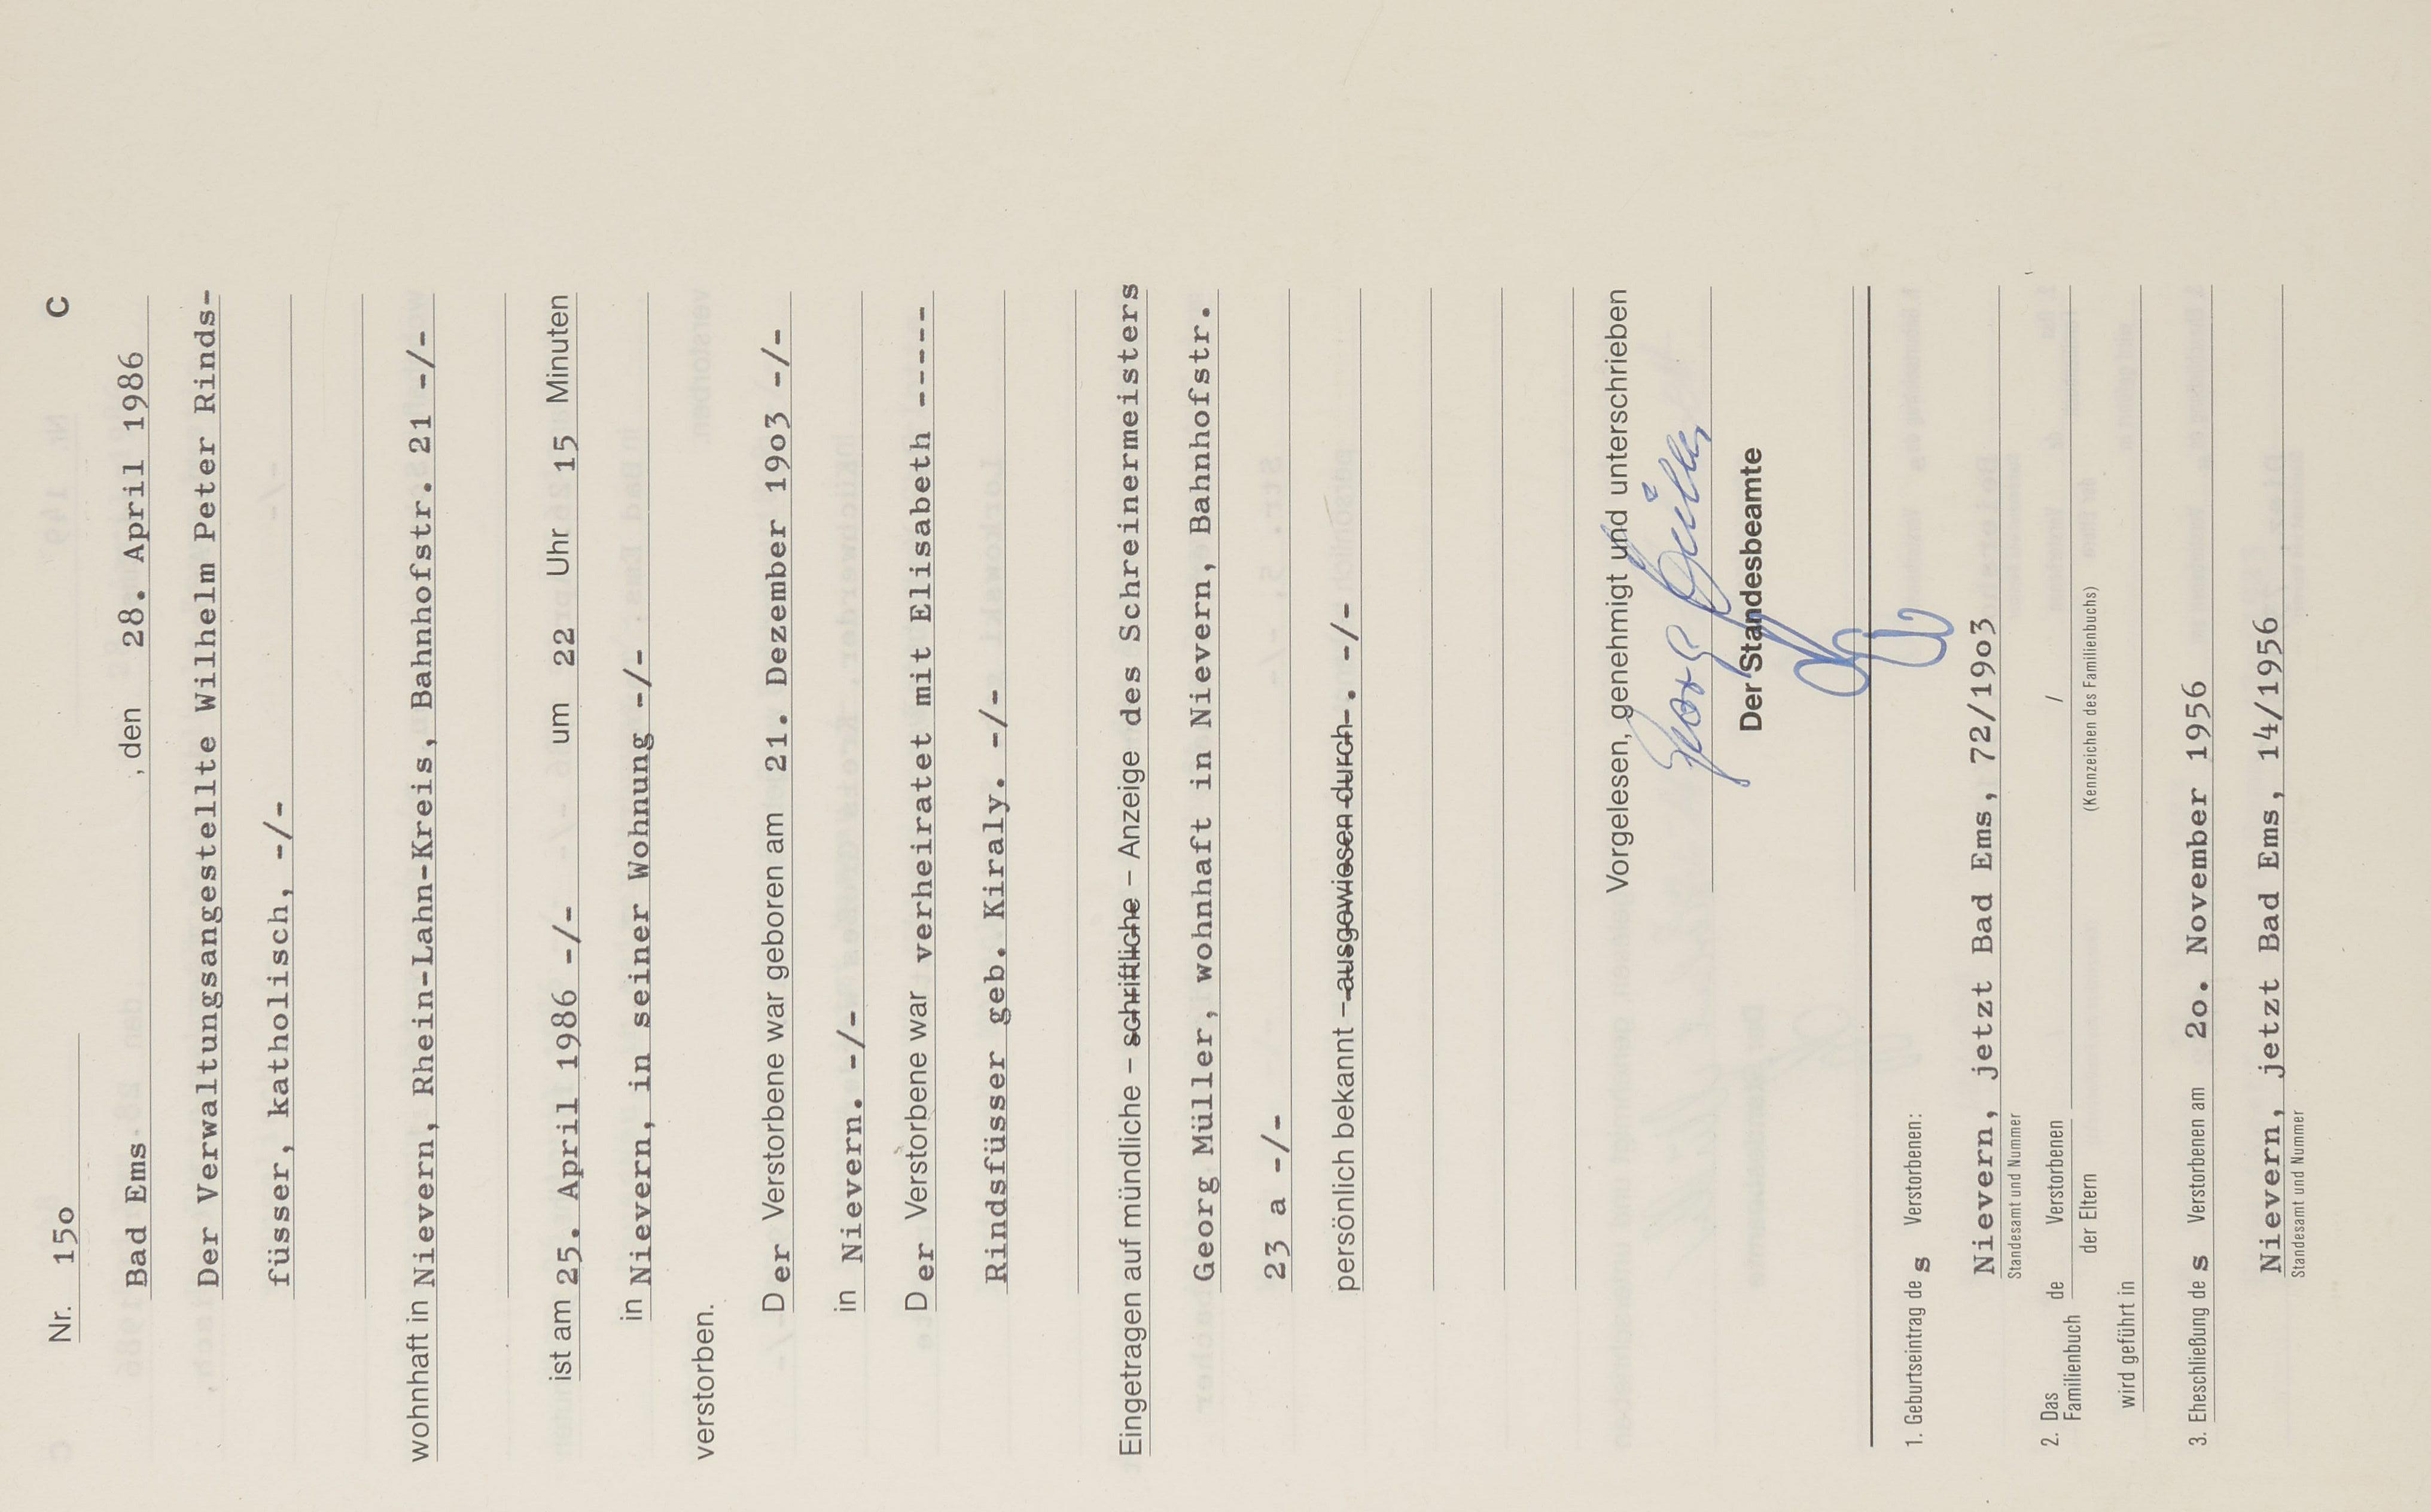 Nr. 15o C
Bad Ems , den 28. April 1986
Der Verwaltungsangestellte Wilhelm Peter Rinds-
füsser, katholisch, -/-
wohnhaft in Nievern, Rhein-Lahn-Kreis, Bahnhofstr. 21 -/-
ist am 25. April 1986 -/- um 22 Uhr 15 Minuten
in Nievern, in seiner Wohnung -/-
verstorben.
D er Verstorbene war geboren am 21. Dezember 19o3 -/-
in Nievern. -/-
D er Verstorbene war verheiratet mit Elisabeth -----
Rindsfüsser geb. Kiraly. -/-
Eingetragen auf mündliche – schriftliche – Anzeige des Schreinermeisters
Georg Müller, wohnhaft in Nievern, Bahnhofstr.
23 a -/-
persönlich bekannt – ausgewiesen durch -. -/-
Vorgelesen, genehmigt und unterschrieben
Georg Müller
Der Standesbeamte
1. Geburtseintrag de s Verstorbenen:
Nievern, jetzt Bad Ems, 72/19o3
Standesamt und Nummer
2. Das Familienbuch de Verstorbenen /
der Eltern (Kennzeichen des Familienbuchs)
wird geführt in
3. Eheschließung de s Verstorbenen am 2o. November 1956
Nievern, jetzt Bad Ems, 14/1956
Standesamt und Nummer